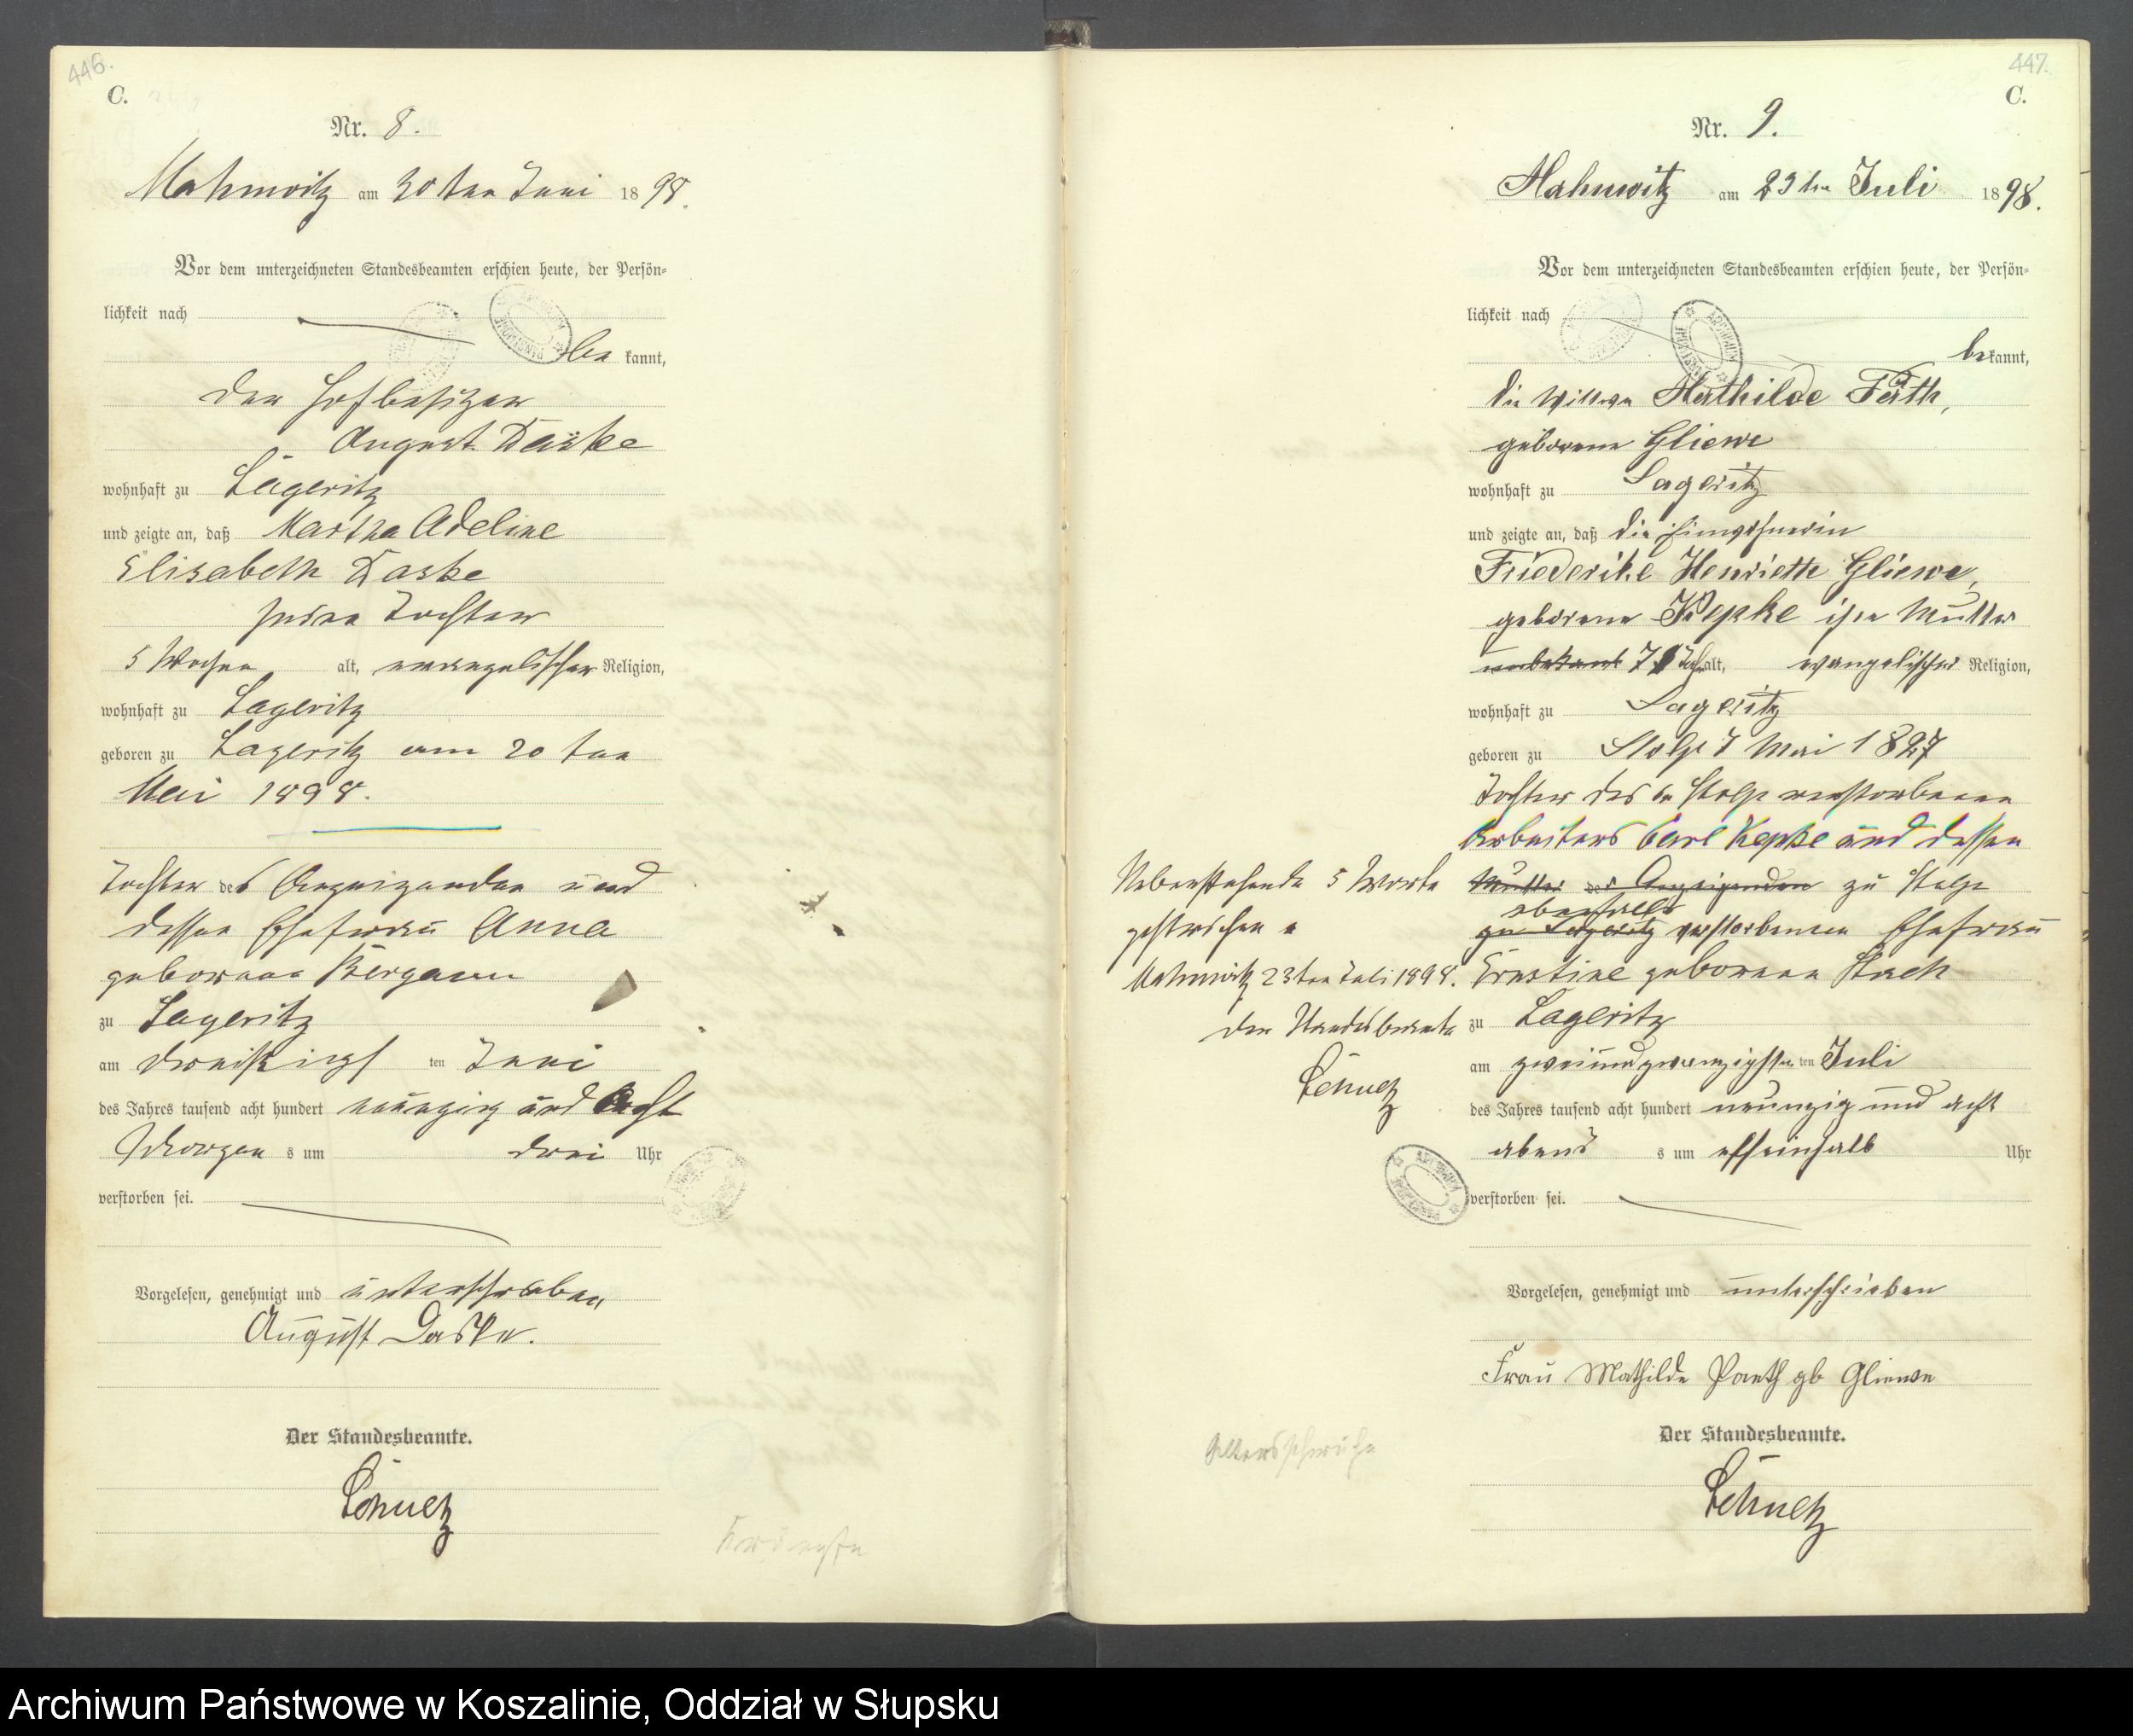 446.
C.
Nr. 8.
Mahnwitz am 30ten Juni 1898.
Vor dem unterzeichneten Standesbeamten erschien heute, der Persön-
lichkeit nach
be kannt,
der Hofbesitzer
August Daske
wohnhaft zu Lageritz
und zeigte an, daß Martha Adeline
Elisabeth Daske
seine Tochter
5 Wochen alt, evangelischer Religion,
wohnhaft zu Lageritz
geboren zu Lageritz am 20 ten
Mai 1898.
Tochter des Anzeigenden und
dessen Ehefrau Anna
geborene
zu Lageritz
am dreißigsten Juni
des Jahres tausend acht hundert neunzig und acht
Morgens um drei Uhr
verstorben sei.
Vorgelesen, genehmigt und unterschrieben
August Daske.
Der Standesbeamte.
447.
C.
Nr. 9.
Mahnwitz am 23ten Juli 1898.
Vor dem unterzeichneten Standesbeamten erschien heute, der Persön-
lichkeit nach
bekannt,
die Wittwe Mathilde Päth,
geborene Gliewe
wohnhaft zu Lageritz
und zeigte an, daß die
Friederike Henriette Gliewe,
geborene Kepke ihre Mutter
unbekannt 71 Jahr alt, evangelischer Religion,
wohnhaft zu Lageritz
geboren zu Stolp 7 Mai 1827
Tochter des in Stolp verstorbenen
Arbeiters Carl Kepke und dessen
Mutter der Anzeigenden zu Stolp
ebenfalls
zu Lageritz verstorbenen Ehefrau
Ernestine geborene
zu Lageritz
am zweiundzwanzigsten Juli
des Jahres tausend acht hundert neunzig und acht
abends um elfeinhalb Uhr
verstorben sei.
Nebenstehende 5 Worte
gestrichen
Mahnwitz 23ten Juli 1898.
Der Standesbeamte
Vorgelesen, genehmigt und unterschrieben
Frau Mathilde Paeth gb Gliewe
Der Standesbeamte.
Altersschwäche
Archiwum Państwowe w Koszalinie, Oddział w Słupsku